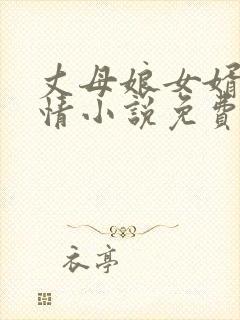 丈母娘女婿
情小說免費
衣亭